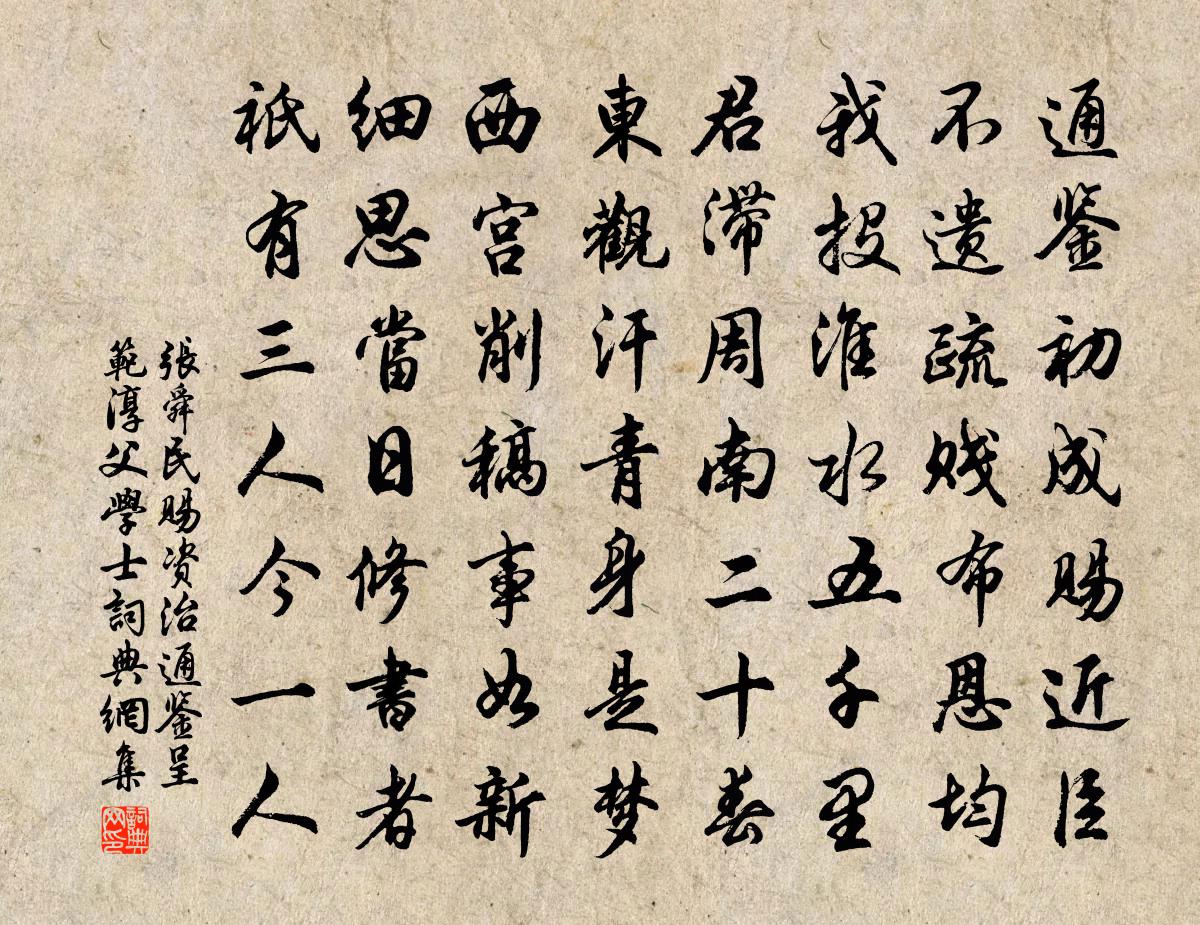 通鉴初成賜近臣
不遗疏贱布恩均
我投淮水五千里
君滞周南二十春
東觀汗青身是梦
西宫削稿事如新
細思當日修書者
祇有三人今一人
張舜民賜资治通鉴呈
範淳父學士詞典網集
詞典
网印